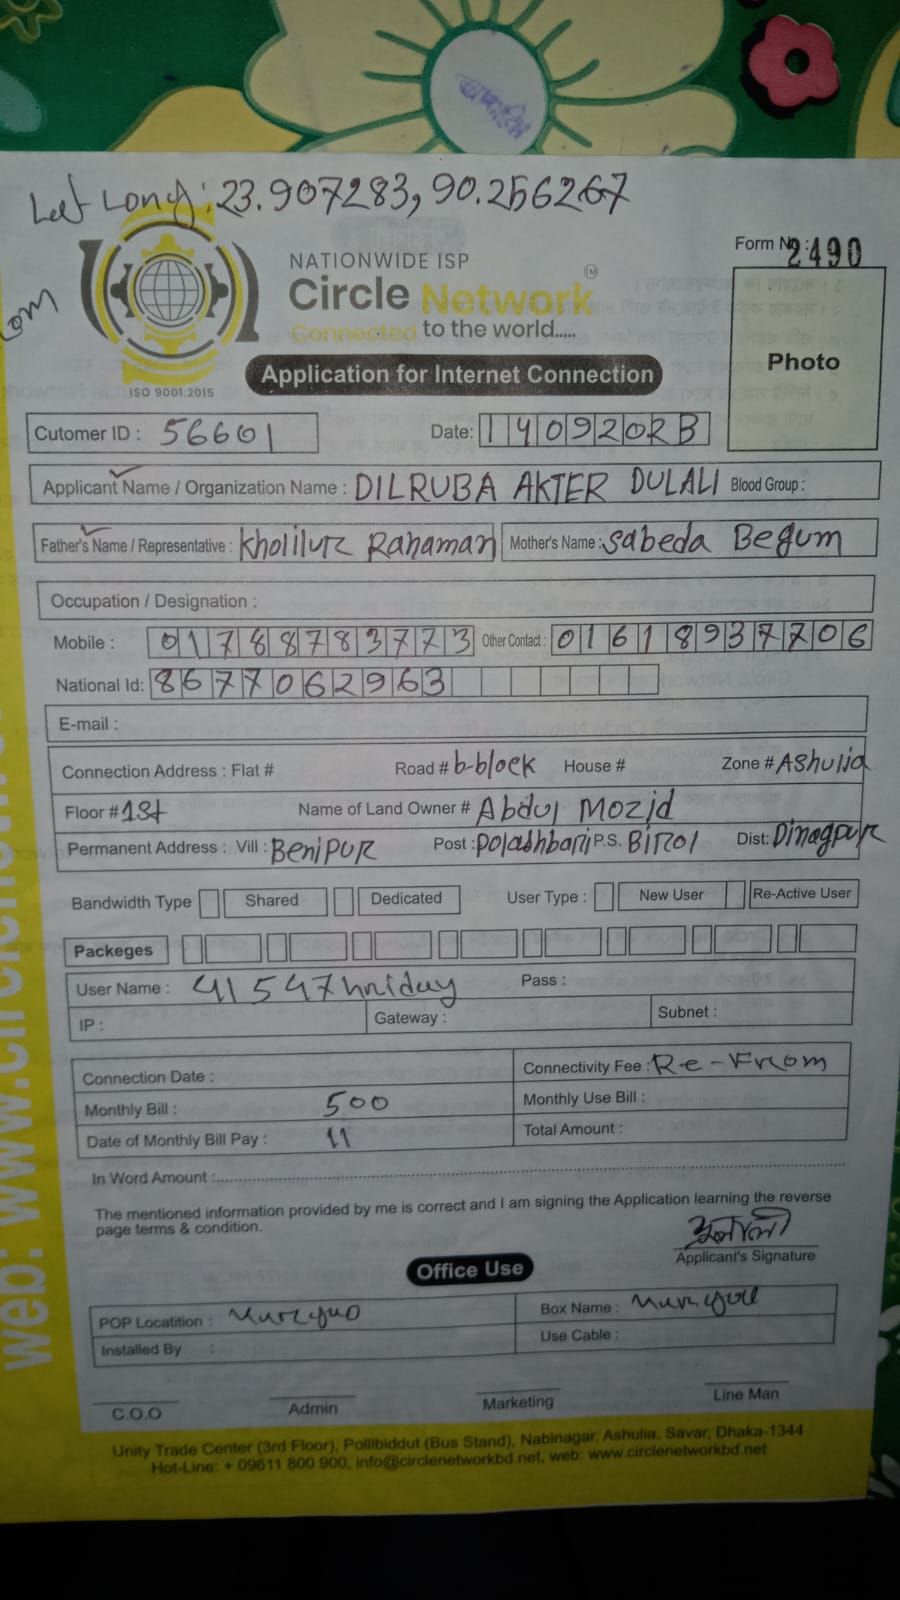 Let Long: 23.907283, 90.256267
Form No: 2490
NATIONWIDE ISP
Circle Network TM
Connected to the world.....
ISO 9001:2015
Application for Internet Connection
Photo
Cutomer ID : 56601
Date: 1 4 0 9 2 0 2 3
Applicant Name / Organization Name : DILRUBA AKTER DULALI Blood Group :
Father's Name / Representative : Kholilur Rahaman Mother's Name : Sabeda Begum
Occupation / Designation :
Mobile : 01788783773 Other Contact : 01618937706
National Id: 8677062963
E-mail :
Connection Address : Flat # Road # b-block House # Zone # Ashulia
Floor # 1st Name of Land Owner # Abdul Mozid
Permanent Address : Vill : Benipur Post : Polashbari P.S. Birol Dist: Dinagpur
Bandwidth Type Shared Dedicated User Type : New User Re-Active User
Packeges
User Name : 41547hriday Pass :
IP : Gateway : Subnet :
Connection Date : Connectivity Fee : Re-From
Monthly Bill : 500 Monthly Use Bill :
Date of Monthly Bill Pay : 11 Total Amount :
In Word Amount :
The mentioned information provided by me is correct and I am signing the Application learning the reverse
page terms & condition.
Applicant's Signature
Office Use
POP Locatition : Box Name :
Installed By : Use Cable :
C.O.O Admin Marketing Line Man
Unity Trade Center (3rd Floor), Pollibiddut (Bus Stand), Nabinagar, Ashulia, Savar, Dhaka-1344
Hot-Line: + 09611 800 900, info@circlenetworkbd.net, web: www.circlenetworkbd.net